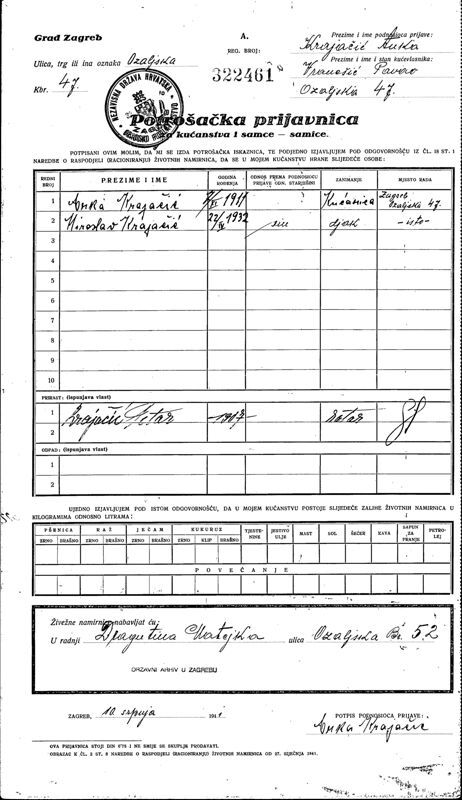 Grad Zagreb
A.
REG. BROJ:
322461
Prezime i ime podnosioca prijave:
Krajačić Anka
Prezime i ime i stan kućevlasnika:
Ozaljska 47.
Ulica, trg ili ina oznaka Ozaljska
Kbr. 47.
NEZAVISNA DRŽAVA HRVATSKA
ZAGREB
Potrošačka prijavnica
za kućanstva i samce — samice.
POTPISANI OVIM MOLIM, DA MI SE IZDA POTROŠAČKA ISKAZNICA, TE PODJEDNO IZJAVLJUJEM POD ODGOVORNOŠĆU IZ ČL. 18 ST. 1
NAREDBE O RASPODJELI (RACIONIRANJU) ŽIVOTNIH NAMIRNICA, DA SE U MOJEM KUĆANSTVU HRANE SLIJEDEĆE OSOBE:
REDNI BROJ PREZIME I IME GODINA ROĐENJA ODNOS PREMA PODNOSIOCU PRIJAVE ODN. STARJEŠINI ZANIMANJE MJESTO RADA
1 Anka Krajačić 1911 Kućanica Zagreb Ozaljska 47.
2 Miroslav Krajačić 22/IV 1932 sin djak —isto—
3
4
5
6
7
8
9
10
PRIRAST: (ispunjava vlast)
1 Krajačić Petar —1907—
2
OTPAD: (ispunjava vlast)
1
2
UJEDNO IZJAVLJUJEM POD ISTOM ODGOVORNOŠĆU, DA U MOJEM KUĆANSTVU POSTOJE SLIJEDEĆE ZALIHE ŽIVOTNIH NAMIRNICA U
KILOGRAMIMA ODNOSNO LITRAMA:
PŠENICA RAŽ JEČAM KUKURUZ TJESTENINE JESTIVO ULJE MAST SOL ŠEĆER KAVA SAPUN ZA PRANJE PETROLEJ
ZRNO BRAŠNO ZRNO BRAŠNO ZRNO BRAŠNO ZRNO KLIP BRAŠNO
POVEĆANJE
Živežne namirnice nabavljat ću:
U radnji Dragutina Matejka ulica Ozaljska Br. 52
DRŽAVNI ARHIV U ZAGREBU
ZAGREB, 10. srpnja 194
POTPIS PODNOSIOCA PRIJAVE:
Anka Krajačić
OVA PRIJAVNICA STOJI DIN 0'75 I NE SMIJE SE SKUPLJE PRODAVATI.
OBRAZAC K ČL. 2 ST. 8 NAREDBE O RASPODJELI (RACIONIRANJU) ŽIVOTNIH NAMIRNICA OD 27. SIJEČNJA 1941.